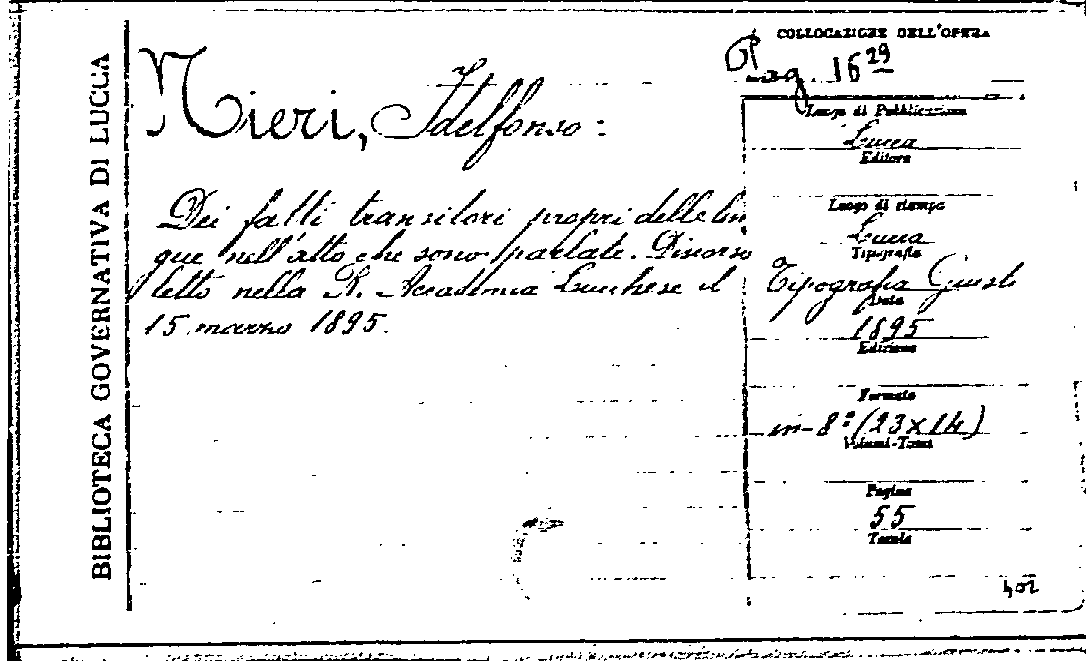 BIBLIOTECA GOVERNATIVA DI LUCCA
Nieri, Idelfonso:
Dei fatti transitori propri delle lin
gue nell'atto che sono parlate. Discorso
letto nella R. Accademia Lucchese il
15 marzo 1895.
COLLOCAZIONE DELL'OPERA
Pag. 16 29
Luogo di Pubblicazione
Lucca
Editore
Luogo di stampa
Lucca
Tipografia
Tipografia Giusti
Data
1895
Edizione
Formato
in-8º (23x14)
Volumi-Tomi
Pagine
55
Tavole
402